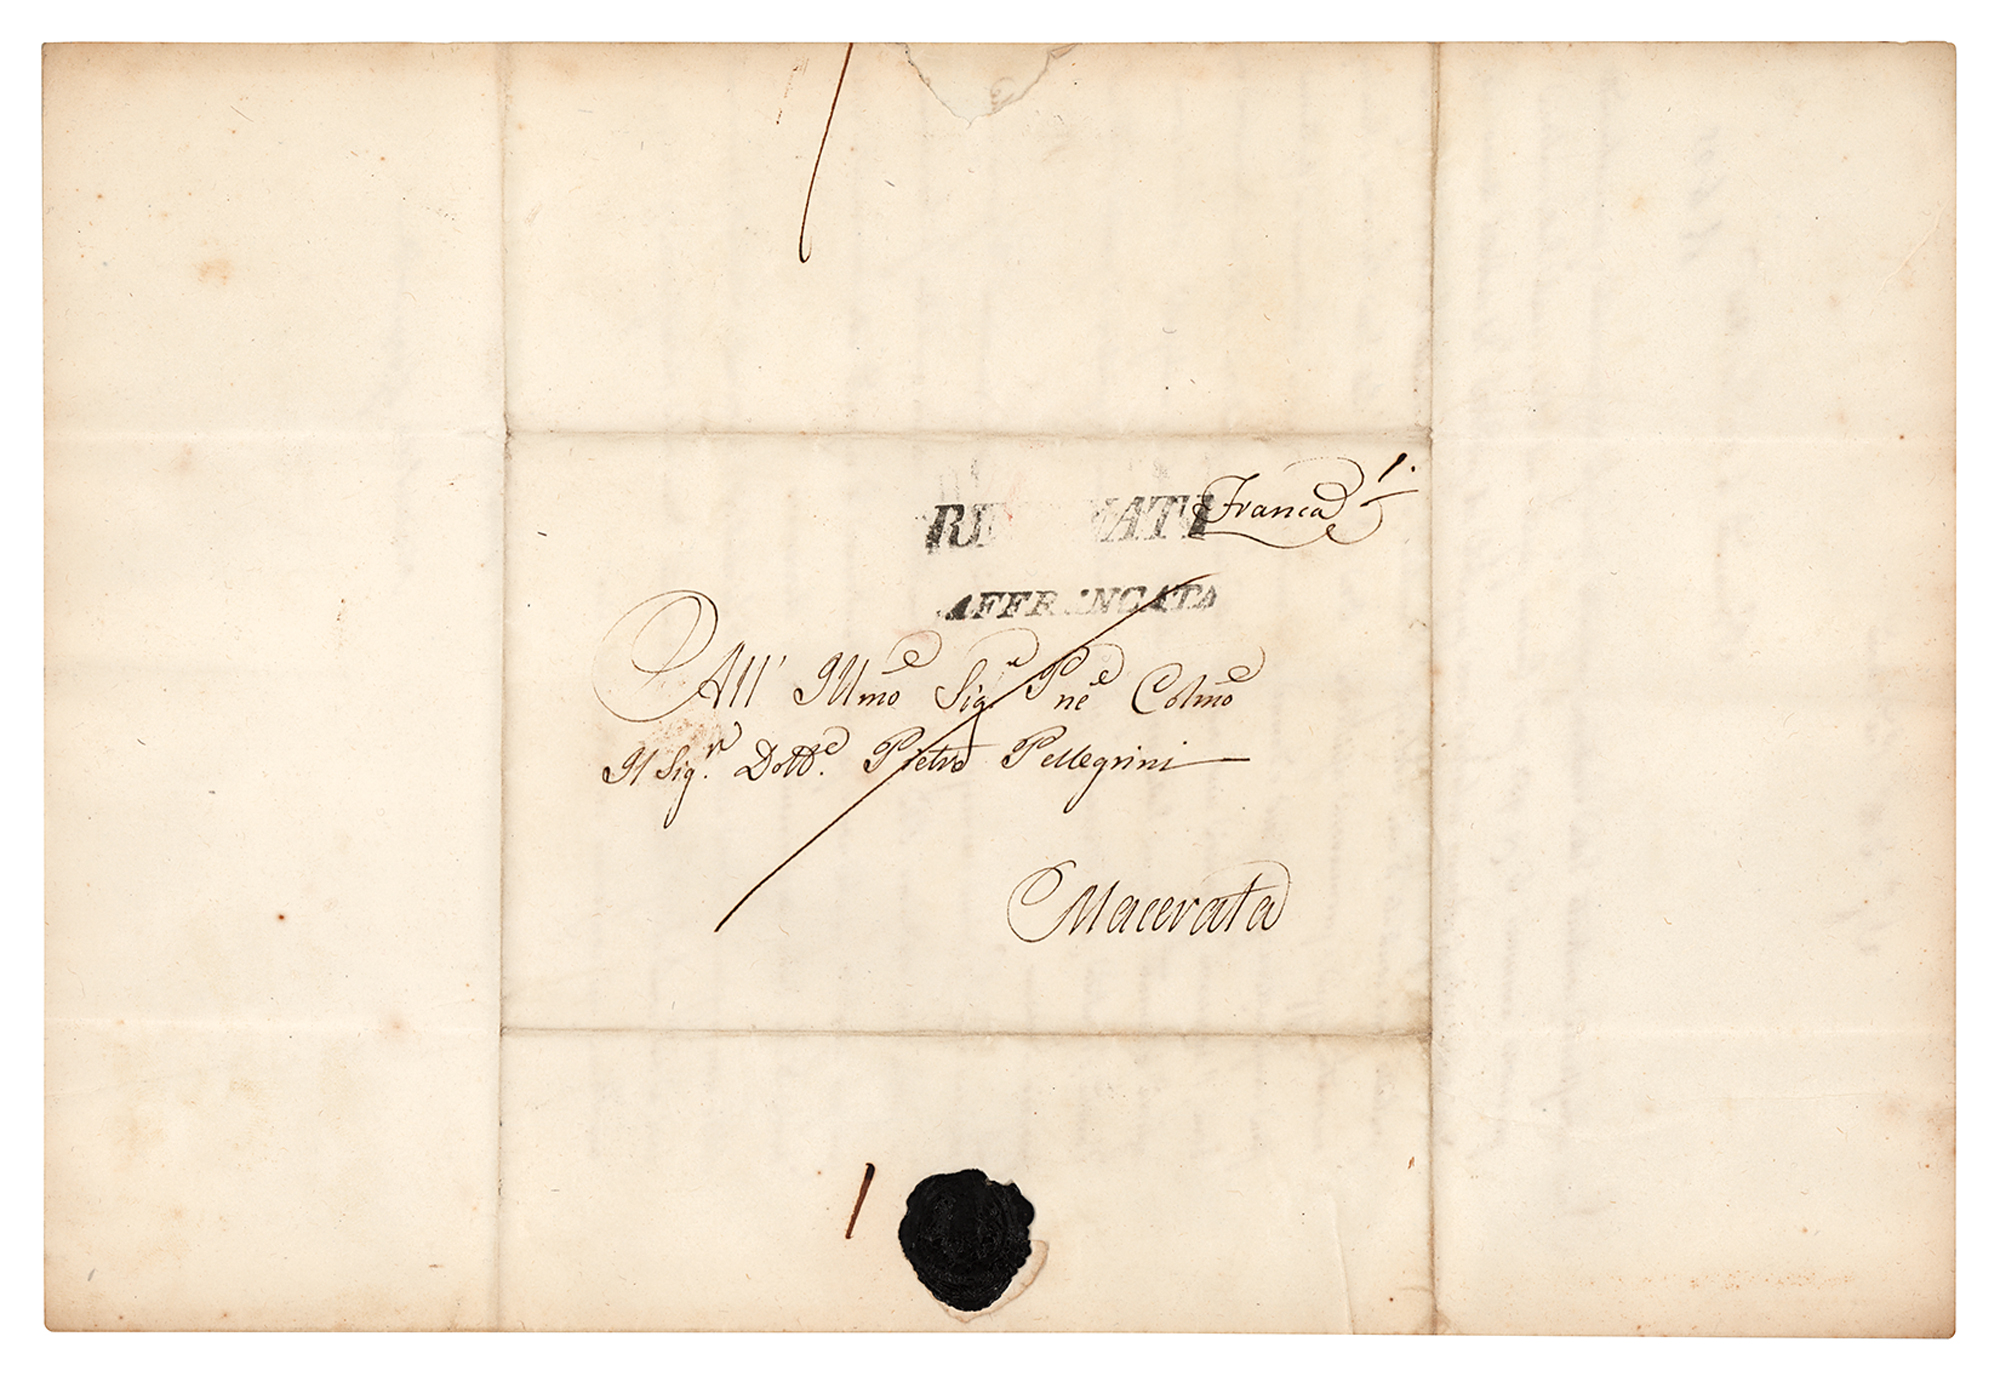 Franca
AFFRANCATA
All' Illmo Sigr Pne Colmo
Il Sigr. Dotte. Pietro Pellegrini
Macerata